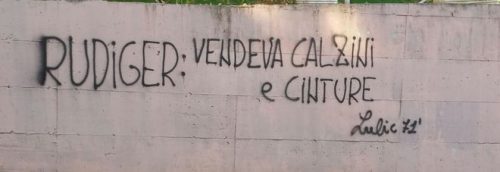 RUDIGER: VENDEVA CALZINI
e CINTURE
Lubic 71'